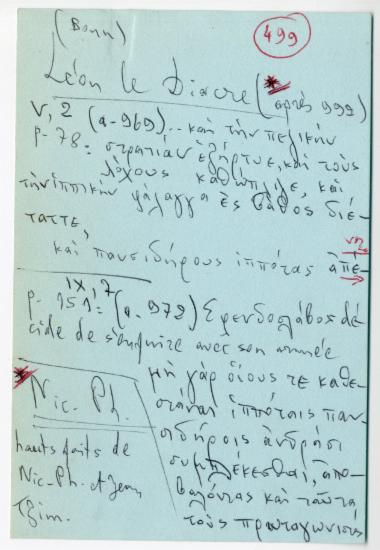 (Bonn)
499
Léon le Diacre (après 999)
V, 2 (a. 969)... καὶ τὴν πεζικὴν
p. 78: στρατιὰν ἐξήρτυε, καὶ τοὺς
λόχους καθώπλιζε, καὶ
τὴν ἱππικὴν φάλαγγα ἐς βάθος διέ-
ταττε,
καὶ πανσιδήρους ἱππότας ἀπέ-
IX, 7
p. 151: (a. 972) Σφενδοσλάβος dé-
cide de s'enfuire avec son armée
μὴ γὰρ οἵους τε καθε-
στάναι ἱππόταις παν-
σιδήροις ἀνδράσι
συμπλέκεσθαι, ἀπο-
βαλόντας καὶ ταῦτα
τοὺς πρωταγωνιστὰς
Nic. Ph.
hauts faits de
Nic-Ph. et Jean
Tzim.